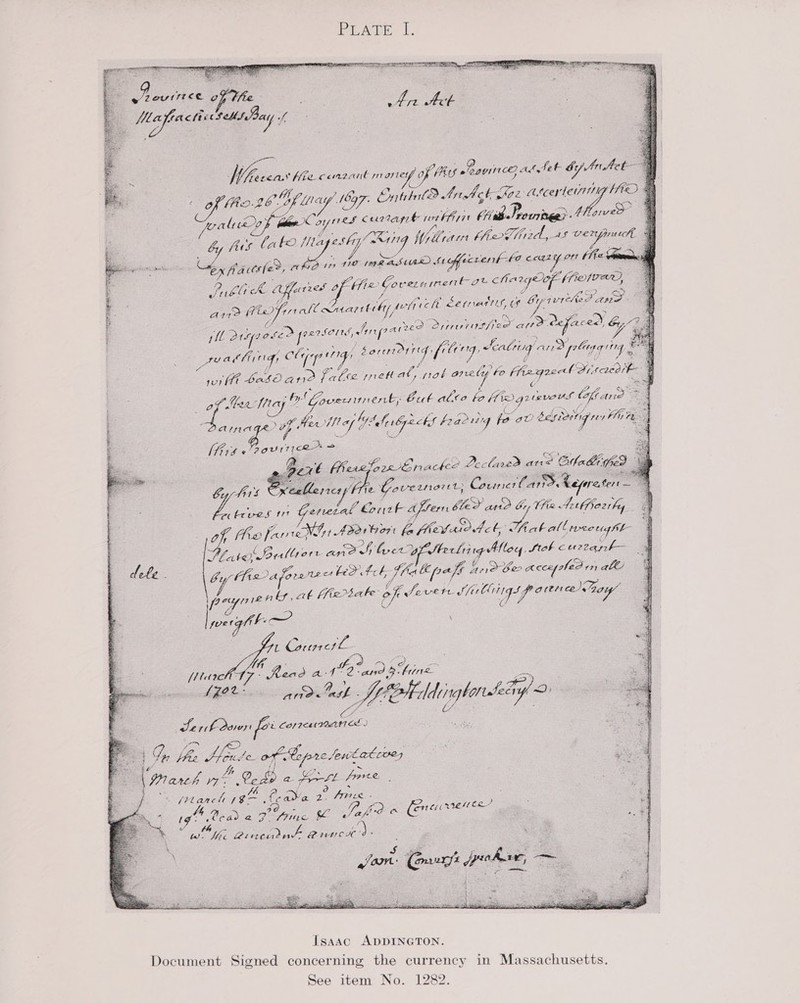 PLATE I.
Province of the
Massachusetts Bay ss.
An Act
Whereas the currant money of this Province, as Set By An Act
of the 26th of may 1697. Entituled An Act For ascertaining the
value of the Coynes currant within this Province Allowed
By his late Majesty King William the Third, is very much
Exhausted, and in no measure sufficient to carry on the
Publick Affaires of the Government or charge of the war,
and the small Quantity which remains, is By wicked and
ill Disposed persons, Impaired Diminished and Defaced, By
washing, Clipping, rounding, filing, Scaling and plugging it
with base and false mettal, not onely to the great Discredit
of Her Majtys Government; But also to the grievous Loss and
Damage of Her Majtys Subjects trading to or residing within
this Province.
Be it therefore Enacted Declared and Established
By his Excellency the Governour, Council and Represen-
tatives in General Court Assembled and By the Authority
of the same In Addition to the said Act, That all wrought
Plate, Bullion and Silver of Sterling Alloy, not currant
dele.
By the aforerecited Act, shall pass and be accepted in all
payments, at the Rate of Seven Shillings p ounce Troy
weight.
In Council
March 17th Read a 1st 2d and 3d time
1702. and Past Is Addington Secry
Sent Down for concurrance.
In the House of Representatives
March 17th Read a First time
March 18th Read a 2d time.
19th Read a 3d time & Pass'd a Concurrence
wth the Amendmt Annexed.
Jams Converse Speaker,
ISAAC ADDINGTON.
Document Signed concerning the currency in Massachusetts.
See item No. 1282.